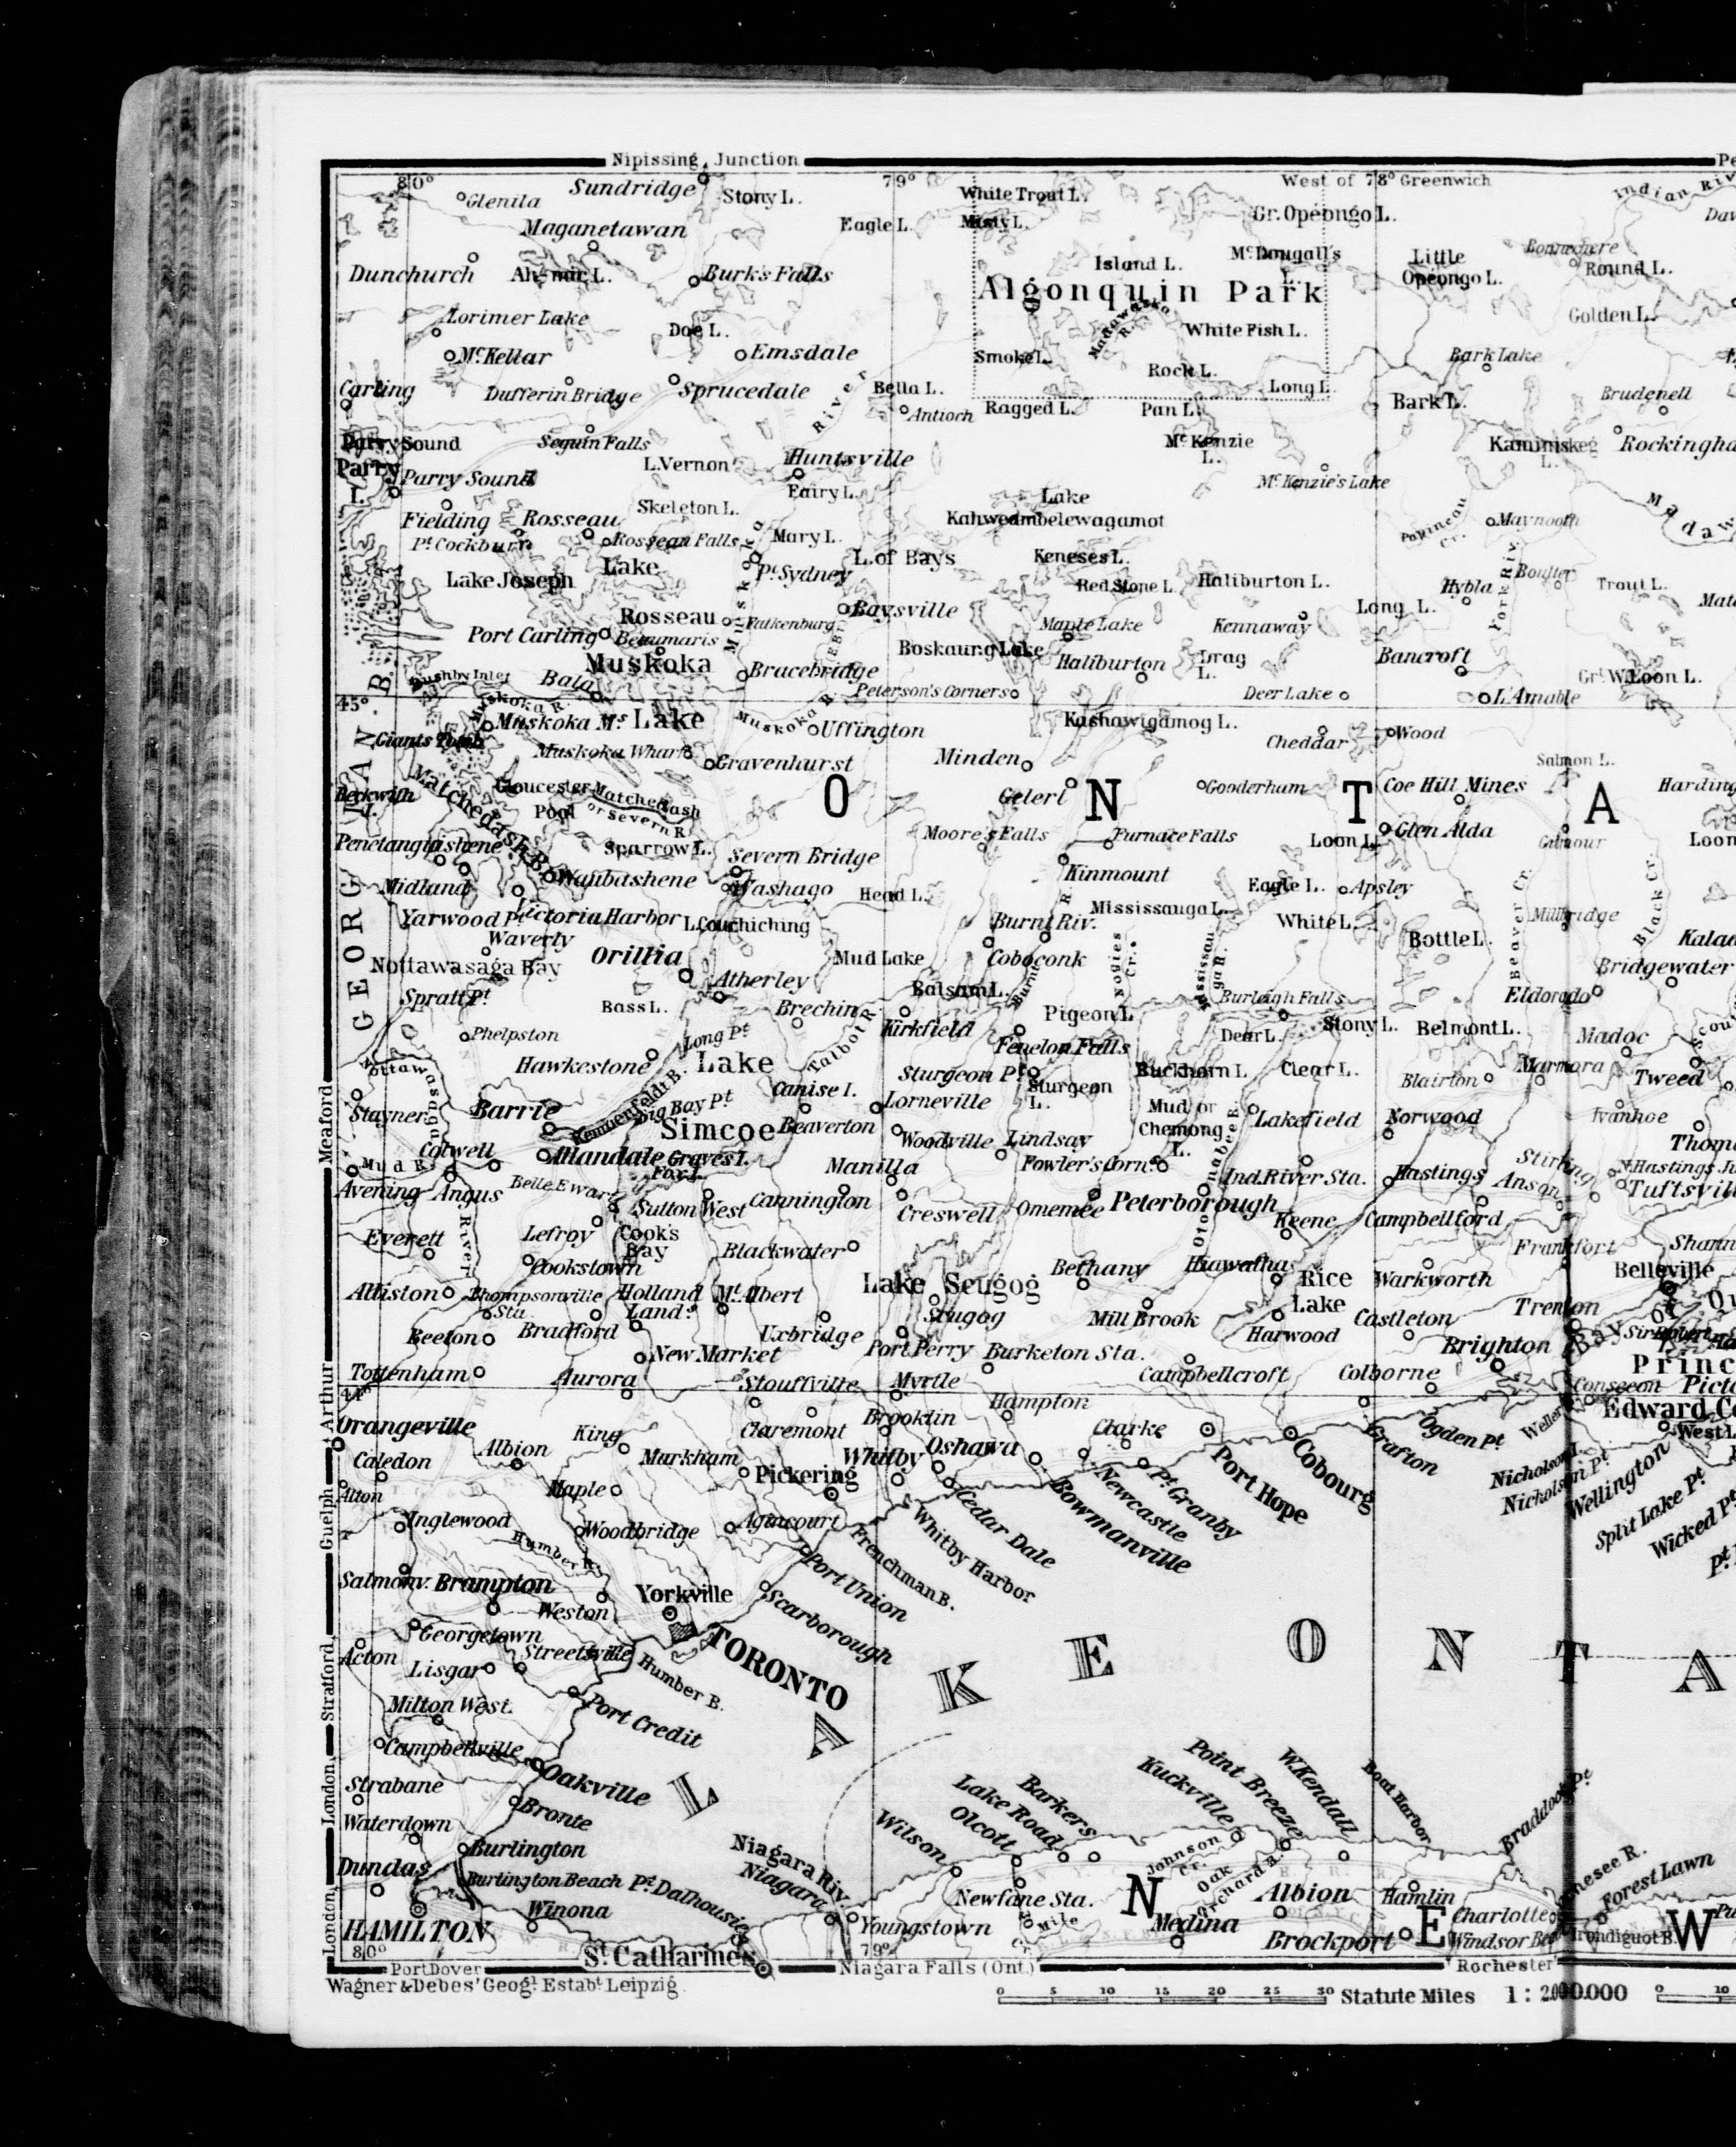 Nipissing Junction
80°
79°
West of 78° Greenwich
Glenila
Sundridge
Stony L.
White Trout L.
Misty L.
Gr. Opeongo L.
Indian Riv
Maganetawan
Eagle L.
Mc.Dougall's
L.
Little
Opeongo L.
Bonnechere
Round L.
Dunchurch
Ah-mic L.
Burk's Falls
Island L.
Algonquin Park
Madawaska
R.
Golden L.
Lorimer Lake
Doe L.
White Fish L.
Mc.Kellar
Emsdale
Smoke L.
Rock L.
Bark Lake
Carling
Dufferin Bridge
Sprucedale
River
Bella L.
Long L.
Brudenell
Antioch
Ragged L.
Pan L.
Bark L.
Parry Sound
Seguin Falls
Mc.Kenzie
L.
Kaminiskeg
L.
Parry
I.
Parry Sound
L.Vernon
Huntsville
Mc.Kenzie's Lake
Fairy L.
Skeleton L.
Lake
Kahweambelewagamot
Fielding
Rosseau
Papineau
Cr.
Maynooth
Pt. Cockburn
Rosseau Falls
Mary L.
L. of Bays
Keneses L.
Lake Joseph
Lake
Rosseau
Pt. Sydney
Red Stone L.
Haliburton L.
Hybla
Boulter
York Riv.
Trout L.
Muskoka
Baysville
Long L.
Falkenburg
Maple Lake
Kennaway
Port Carling
Beaumaris
Boskaung Lake
Haliburton
Drag
L.
Bancroft
Muskoka
Lake
Bracebridge
Rushby Inlet
Bala
Peterson's Corners
Deer Lake
L'Amable
Grt. W. Loon L.
45°
Muskoka R.
Muskoka Ms.
Muskoka R.
Uffington
Kashawigamog L.
Cheddar
Wood
Giants Tomb
Muskoka Wharf
Gravenhurst
Minden
Salmon L.
Beckwith
I.
Matchedash B.
Gloucester
Pool
Matchedash
or Severn R.
O N T A
Gelert
Gooderham
Coe Hill Mines
Penetanguishene
Sparrow L.
Severn Bridge
Moore's Falls
Furnace Falls
Loon L.
Glen Alda
Gilmour
Midland
Waubashene
Washago
Head L.
Kinmount
Eagle L.
Apsley
Yarwood Pt.
Victoria Harbor
L. Couchiching
Burnt Riv.
Mississauga L.
White L.
Millbridge
Waverly
Orillia
Mud Lake
Coboconk
Nogies
Cr.
Mississau
ga R.
Bottle L.
Beaver Cr.
Black Cr.
Nottawasaga Bay
Atherley
Balsam L.
Burnt R.
Burleigh Falls
Bridgewater
Spratt Pt.
Bass L.
Brechin
Eldorado
GEORGIAN B.
Phelpston
Long Pt.
Talbot R.
Kirkfield
Pigeon L.
Deer L.
Stony L.
Belmont L.
Madoc
Hawkestone
Lake
Simcoe
Fenelon Falls
Sturgeon Pt.
Sturgeon
L.
Buckhorn L.
Clear L.
Blairton
Marmora
Tweed
Nottawasaga
River
Stayner
Barrie
Kempenfeldt B.
Big Bay Pt.
Canise I.
Lorneville
Mud or
Chemong
L.
Lakefield
Norwood
Ivanhoe
Beaverton
Woodville
Lindsay
Colwell
Allandale
Graves I.
Fox I.
Manilla
Fowler's Corn.s
Ind. River Sta.
Hastings
Stirling
Anson
Mud R.
Avening
Angus
Belle Ewart
Sutton West
Cannington
Creswell
Omemee
Peterborough
Otonabee R.
Tuftsville
Everett
Lefroy
Cook's
Bay
Blackwater
Keene
Campbellford
Frankfort
Cookstown
Bethany
Hiawatha
Alliston
Thompsonville
Sta.
Holland
Land.g
Mt. Albert
Lake Scugog
Scugog
Rice
Lake
Warkworth
Belleville
Beeton
Bradford
Uxbridge
Mill Brook
Harwood
Castleton
Trenton
New Market
Port Perry
Burketon Sta.
Brighton
Tottenham
Aurora
Stouffville
Myrtle
Campbellcroft
Colborne
Consecon
44°
Orangeville
King
Claremont
Brooklin
Hampton
Clarke
Grafton
Ogden Pt.
Albion
Markham
Whitby
Oshawa
Port Hope
Cobourg
West L.
Caledon
Pickering
Newcastle
Pt. Granby
Bowmanville
Nicholson I.
Nicholson Pt.
Wellington
Alton
Maple
Cedar Dale
Split Lake Pt.
Inglewood
Humber R.
Woodbridge
Agincourt
Whitby Harbor
Frenchman B.
Wicked Pt.
Salmonv.
Brampton
Yorkville
Port Union
Weston
Scarborough
Georgetown
TORONTO
Acton
Streetsville
Humber B.
Lisgar
Milton West.
Port Credit
LAKE ONTA
Campbellville
Strabane
Oakville
Bronte
Waterdown
Burlington
Dundas
Burlington Beach
Pt. Dalhousie
Niagara Riv.
Niagara
Wilson
Olcott
Lake Road
Barkers
Kuckville
Point Breeze
W. Kendall
Boat Harbor
Braddock Pt.
Johnson
Cr.
Oak
Orchard R.
Genesee R.
Forest Lawn
Winona
HAMILTON
Youngstown
Newfane Sta.
Mile
Cr.
N E W
Albion
Hamlin
Charlotte
Medina
Windsor Bea
Irondiquot B.
St. Catharines
Brockport
80°
79°
Meaford
Arthur
Guelph
Stratford
London
London
Port Dover
Niagara Falls (Ont.)
Rochester
Wagner & Debes' Geogl. Estabt. Leipzig
0 5 10 15 20 25 30 Statute Miles 1: 2000.000 0 10